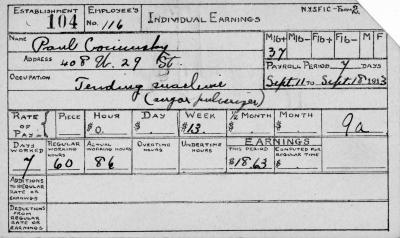 ESTABLISHMENT 104 EMPLOYEE'S No. 116 INDIVIDUAL EARNINGS N.Y.S.F.I.C-Form 2
NAME Paul M16+ M16- F16+ F16- M F
37
ADDRESS 408 W. 29 St. PAYROLL PERIOD 7 DAYS
OCCUPATION Tending machine Sept. 11 TO Sept. 18 1913
(sugar pulverizer)
RATE OF PAY- PIECE HOUR $0 DAY WEEK $13. 1/2 MONTH MONTH 9a
DAYS WORKED 7 REGULAR WORKING HOURS 60 ACTUAL WORKING HOURS 86 OVERTIME HOURS UNDERTIME HOURS EARNINGS
THIS PERIOD $18.63 COMPUTED FOR REGULAR TIME $
ADDITIONS TO REGULAR RATE OR EARNINGS
DEDUCTIONS FROM REGULAR RATE OR EARNINGS